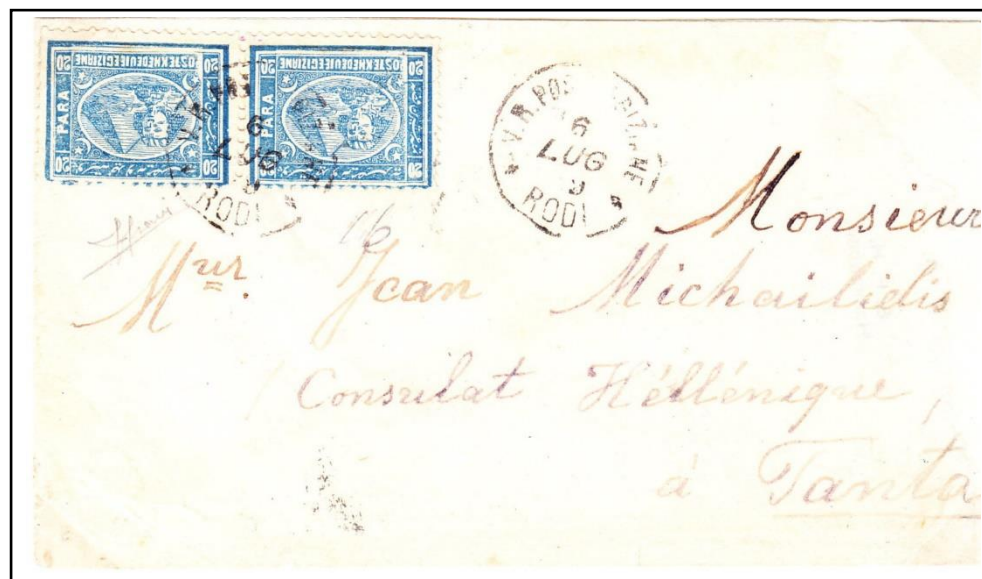 POSTE KHEDEUIE EGIZIANE
20 PARA 20
20 20
POSTE KHEDEUIE EGIZIANE
20 PARA 20
20 20
V.R.
6
LUG
RODI
V.R. POS
6
LUG
9
RODI
16
Monsieur
Mur Jean Michailidis
Consulat Héllénique,
à Tanta